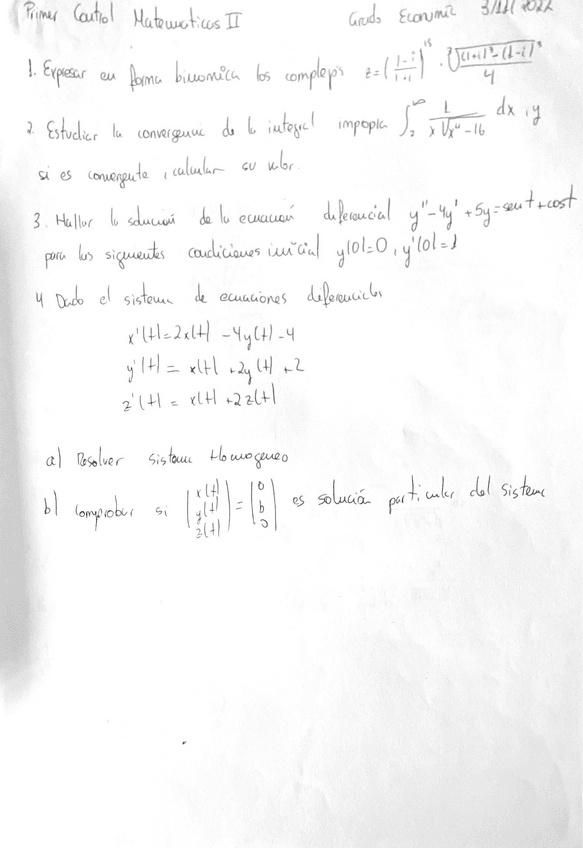 Primer Control Matematicas II Grado Economía 3/11/2022
1. Expresar en forma binomica los complejos z=(1-i/1+i)^15 · √((1+i)^3-(1-i)^3)/4
2. Estudiar la convergencia de la integral impropia ∫_2^∞ 1/(x√(x^4-16)) dx, y
si es convergente, calcular su valor.
3. Hallar la solución de la ecuación diferencial y''-4y'+5y=sent+cost
para las siguientes condiciones inicial y(0)=0, y'(0)=1
4 Dado el sistema de ecuaciones diferenciales
x'(t)=2x(t)-4y(t)-4
y'(t)=x(t)+2y(t)+2
z'(t)=x(t)+2z(t)
a) Resolver sistema Homogeneo
b) Comprobar si (x(t) y(t) z(t)) = (0 b 0) es solución particular del sistema